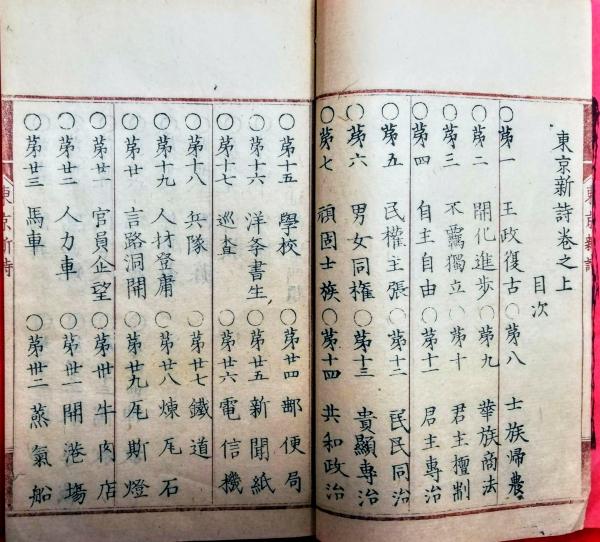 東京新詩卷之上
目次
○苐一 王政復古 ○苐八 士族帰農
○苐二 開化進步 ○苐九 華族商法
○苐三 不羈獨立 ○苐十 君主擅制
○苐四 自主自由 ○苐十一 君主專治
○苐五 民權主張 ○苐十二 民民同治
○苐六 男女同権 ○苐十三 貴顯專治
○苐七 頑固士族 ○苐十四 共和政治
○苐十五 學校 ○苐廿四 郵便局
○苐十六 洋斈書生 ○苐廿五 新聞紙
○苐十七 巡査 ○苐廿六 電信機
○苐十八 兵隊 ○苐廿七 鐵道
○苐十九 人材登庸 ○苐廿八 煉瓦石
○苐廿 言路洞開 ○苐廿九 瓦斯燈
○苐廿一 官員企望 ○苐卅 牛肉店
○苐廿二 人力車 ○苐卅一 開港場
○苐廿三 馬車 ○苐卅二 蒸氣船
東京新詩
東京新詩